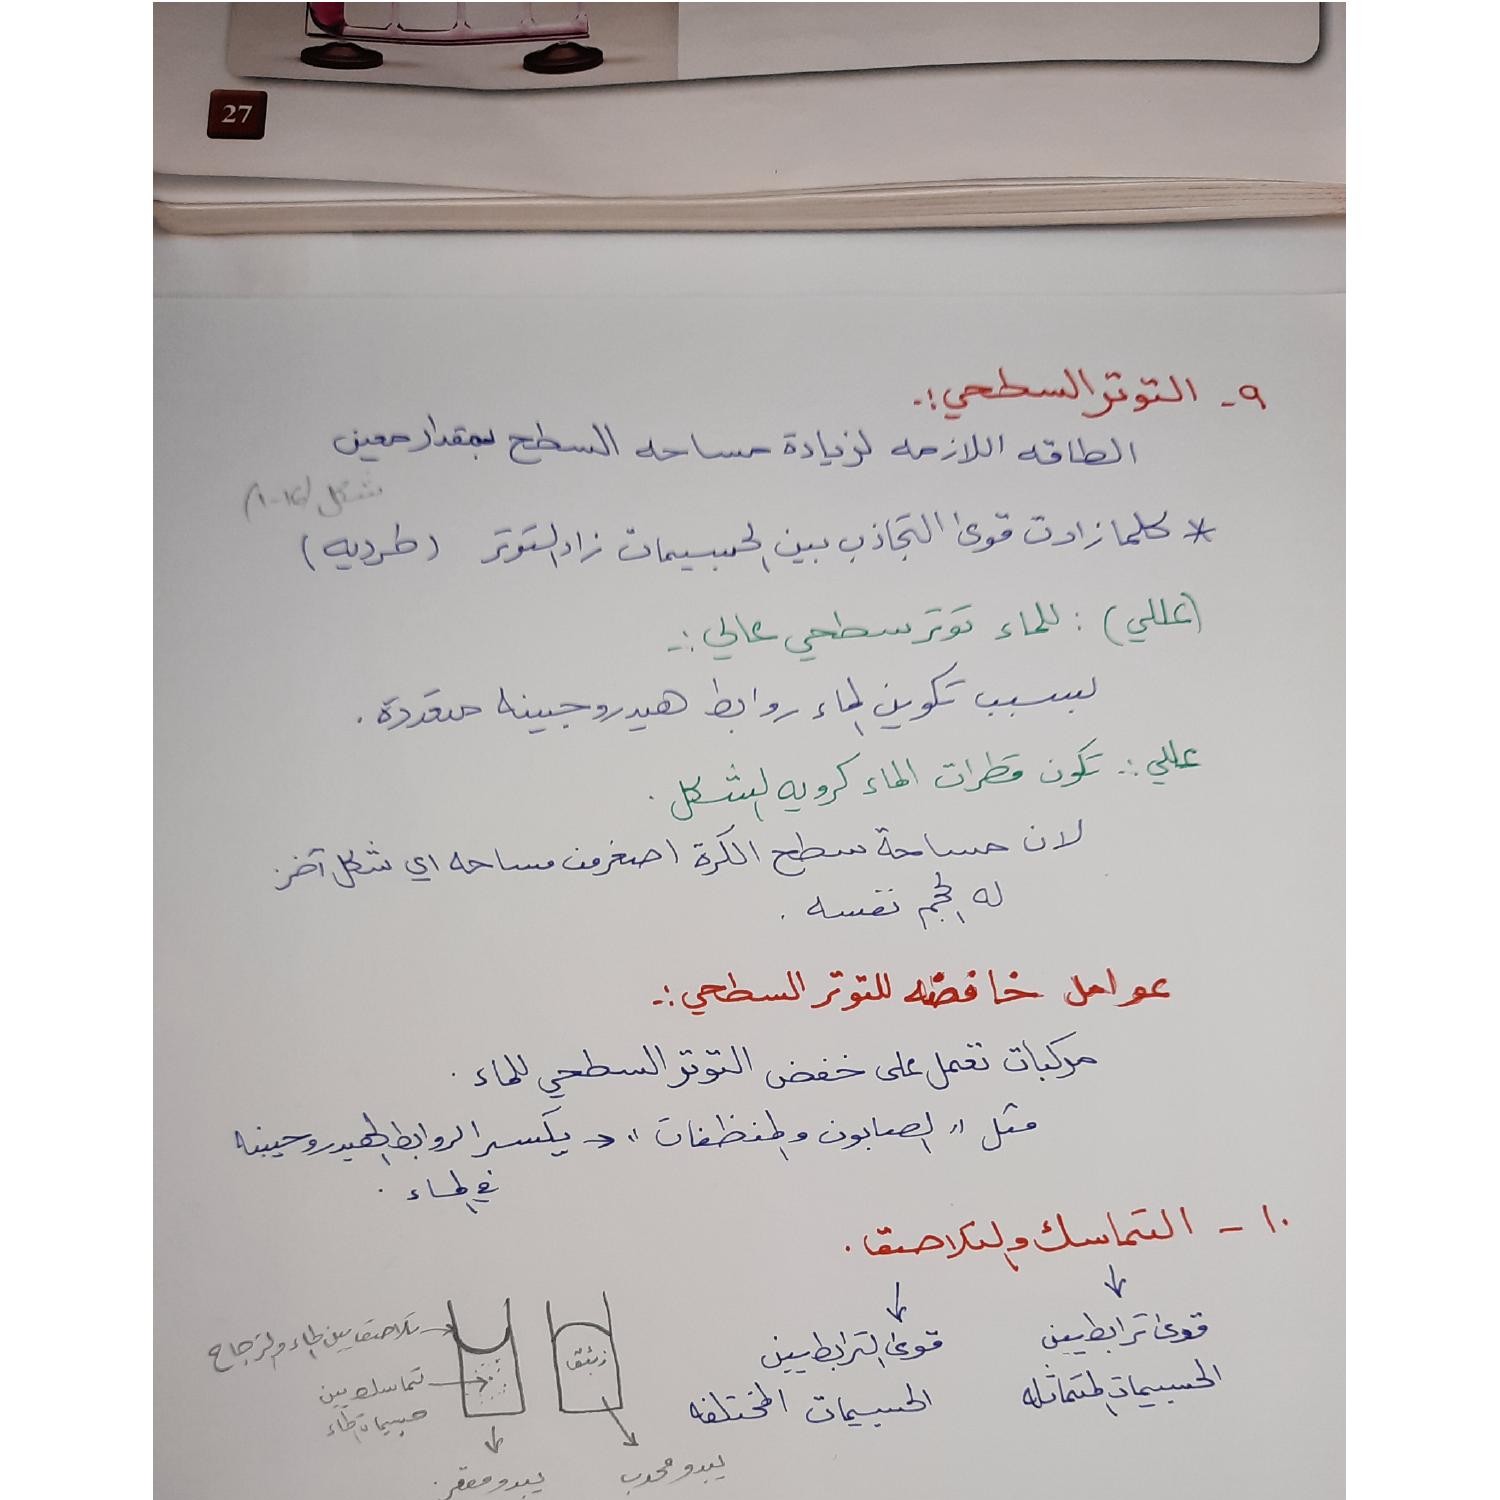 27
٩- التوتر السطحي :-
الطاقه اللازمه لزيادة مساحه السطح بمقدار معين
شكل (16-1)
* كلما زادت قوى التجاذب بين الجسيمات زاد التوتر (طرديه)
(عللي) : للماء توتر سطحي عالي :-
لبسبب تكوين الماء روابط هيدروجينه متعددة .
عللي :- تكون قطرات الماء كرويه الشكل .
لان مساحة سطح الكرة اصغر من مساحه اي شكل آخر
له الحجم نفسه .
عوامل خافضه للتوتر السطحي :-
مركبات تعمل على خفض التوتر السطحي للماء .
مثل " الصابون والمنظفات " -> يكسر الروابط الهيدروجينه
في الماء .
١٠ - التماسك والتلاصق .
قوى ترابط بين
الجسيمات المتماثله
قوى الترابط بين
الجسيمات المختلفه
زئبق
يبدو محدب
تلاصق بين الماء والزجاج
تماسك بين
جسيمات الماء
يبدو مقعر .